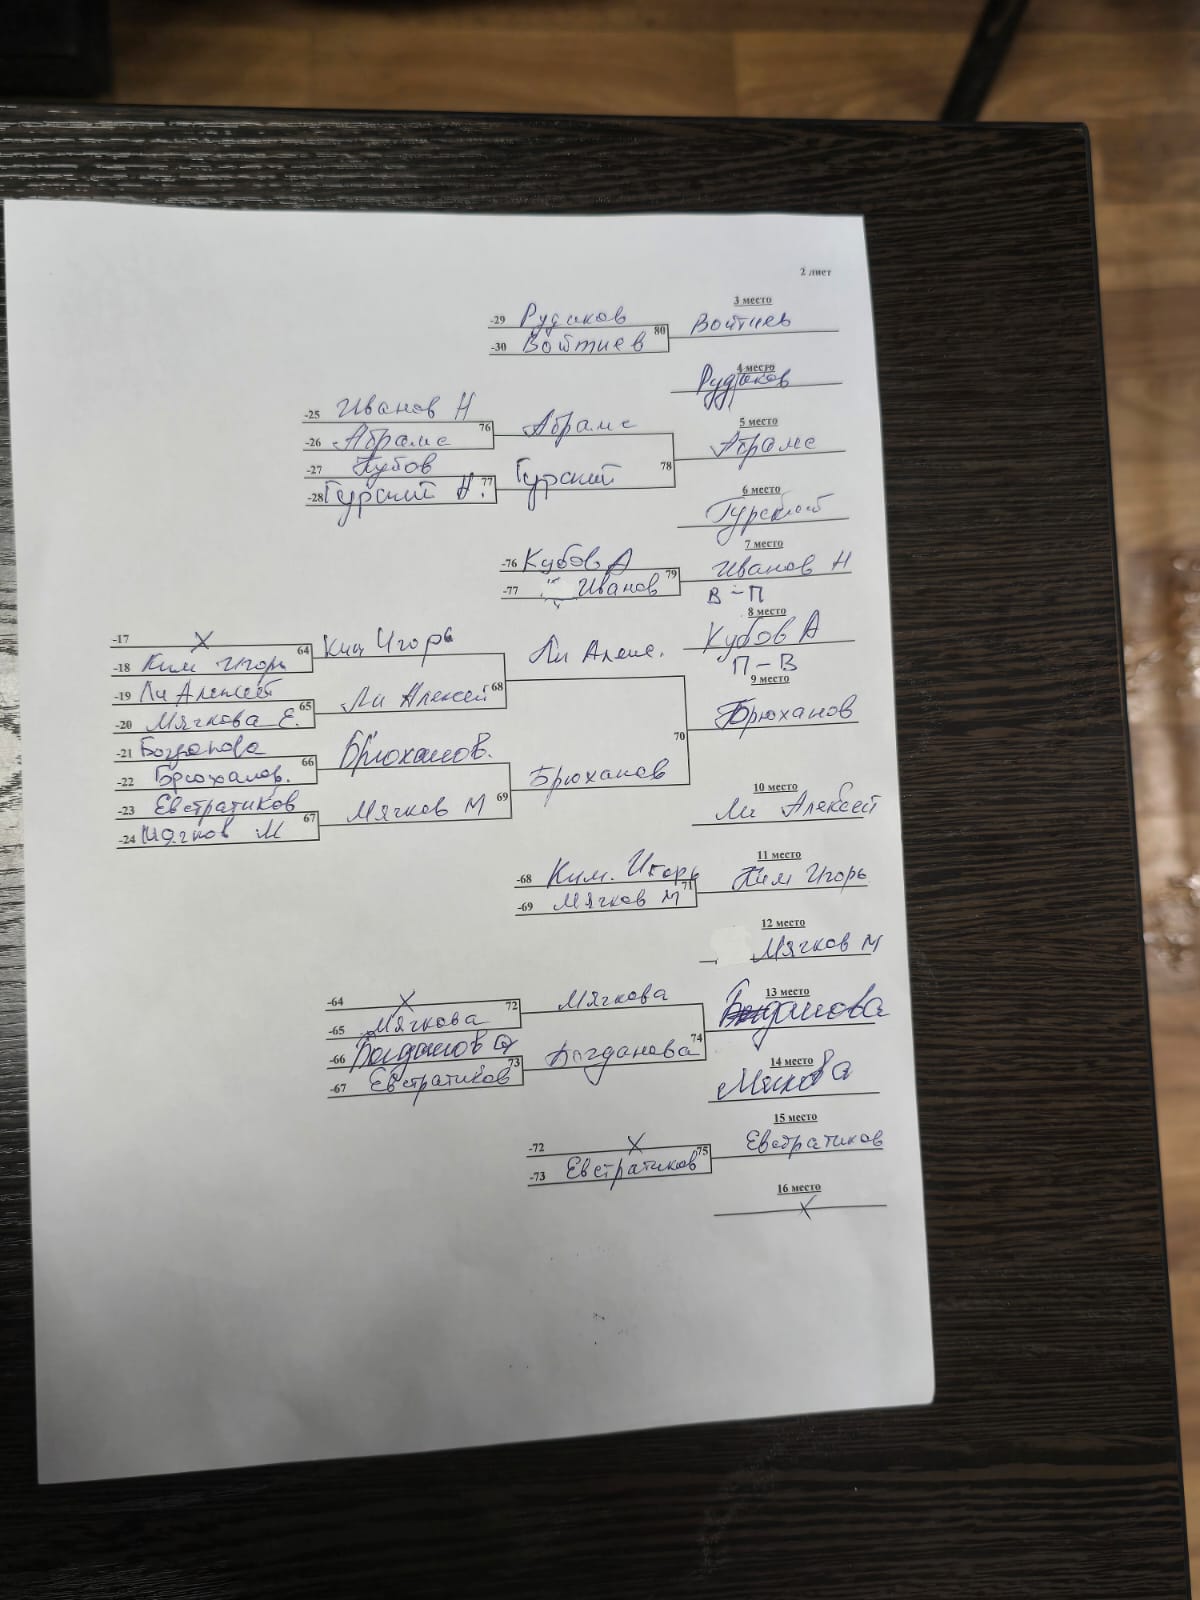 2 лист
3 место
-29 Рудаков 80 Войтиев
-30 Войтиев
4 место
Рудаков
-25 Иванов Н 76 Абрамс
-26 Абрамс
5 место
78 Абрамс
-27 Кубов 77 Гурский
-28 Гурский Н.
6 место
Гурский
7 место
-76 Кубов А 79 Иванов Н
-77 Иванов
В-П
8 место
Кубов А
П-В
-17 X 64 Ким Игорь
-18 Ким Игорь
68 Ли Алекс.
-19 Ли Алексей 65 Ли Алексей
-20 Мягкова Е.
9 место
70 Брюханов
-21 Богданова 66 Брюханов.
-22 Брюханов.
69 Брюханов
-23 Евстратиков 67 Мягков М
-24 Мягков М
10 место
Ли Алексей
11 место
-68 Ким. Игорь 71 Ким Игорь
-69 Мягков М
12 место
Мягков М
-64 X 72 Мягкова
-65 Мягкова
13 место
74 Богданова
-66 Богданова 73 Богданова
-67 Евстратиков
14 место
15 место
-72 X 75 Евстратиков
-73 Евстратиков
16 место
X